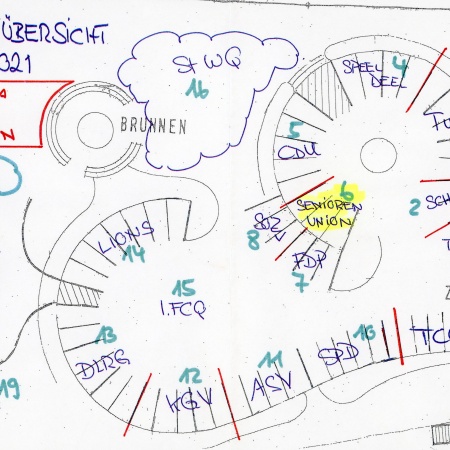 ÜBERSICHT
321
N
St WQ
16
BRUNNEN
SPEEL
DEEL
4
5
CDU
6
SENIOREN
UNION
2
SCH
8
FDP
7
LIONS
14
15
1.FCQ
13
DLRG
12
KGV
11
ASV
SPD
10
TC
19